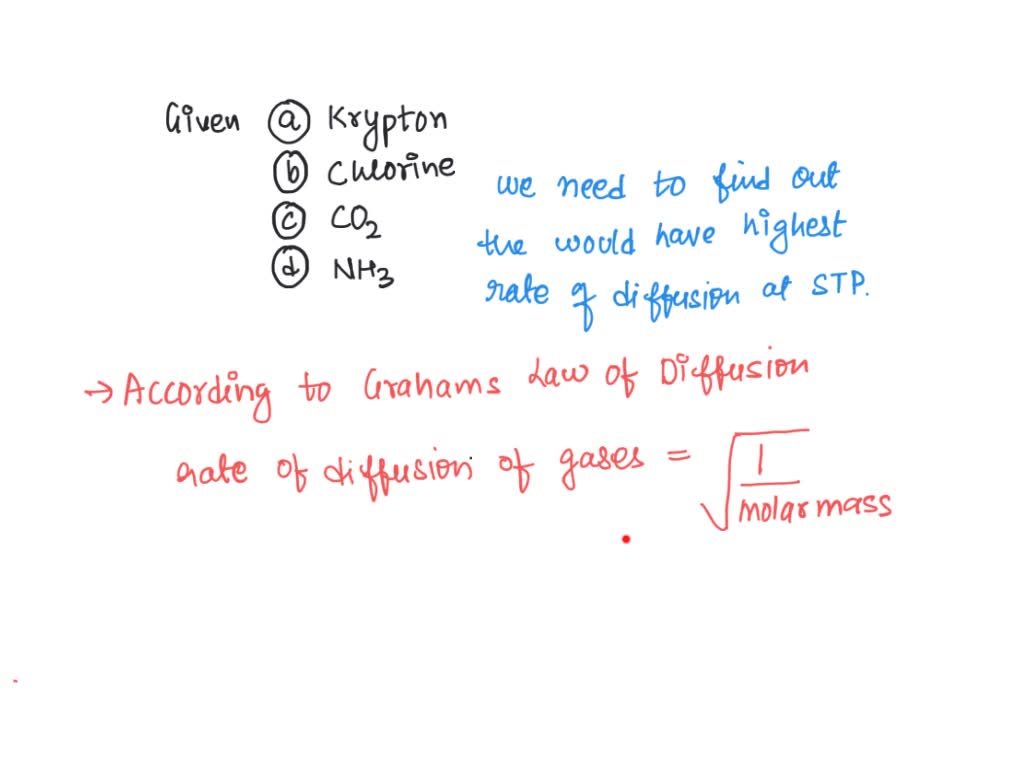 Given ⓐ Krypton
ⓑ Chlorine
ⓒ CO₂
ⓓ NH₃
we need to find out
the would have highest
rate of diffusion at STP.
→ According to Grahams Law of Diffusion
rate of diffusion of gases = √(1/molar mass)